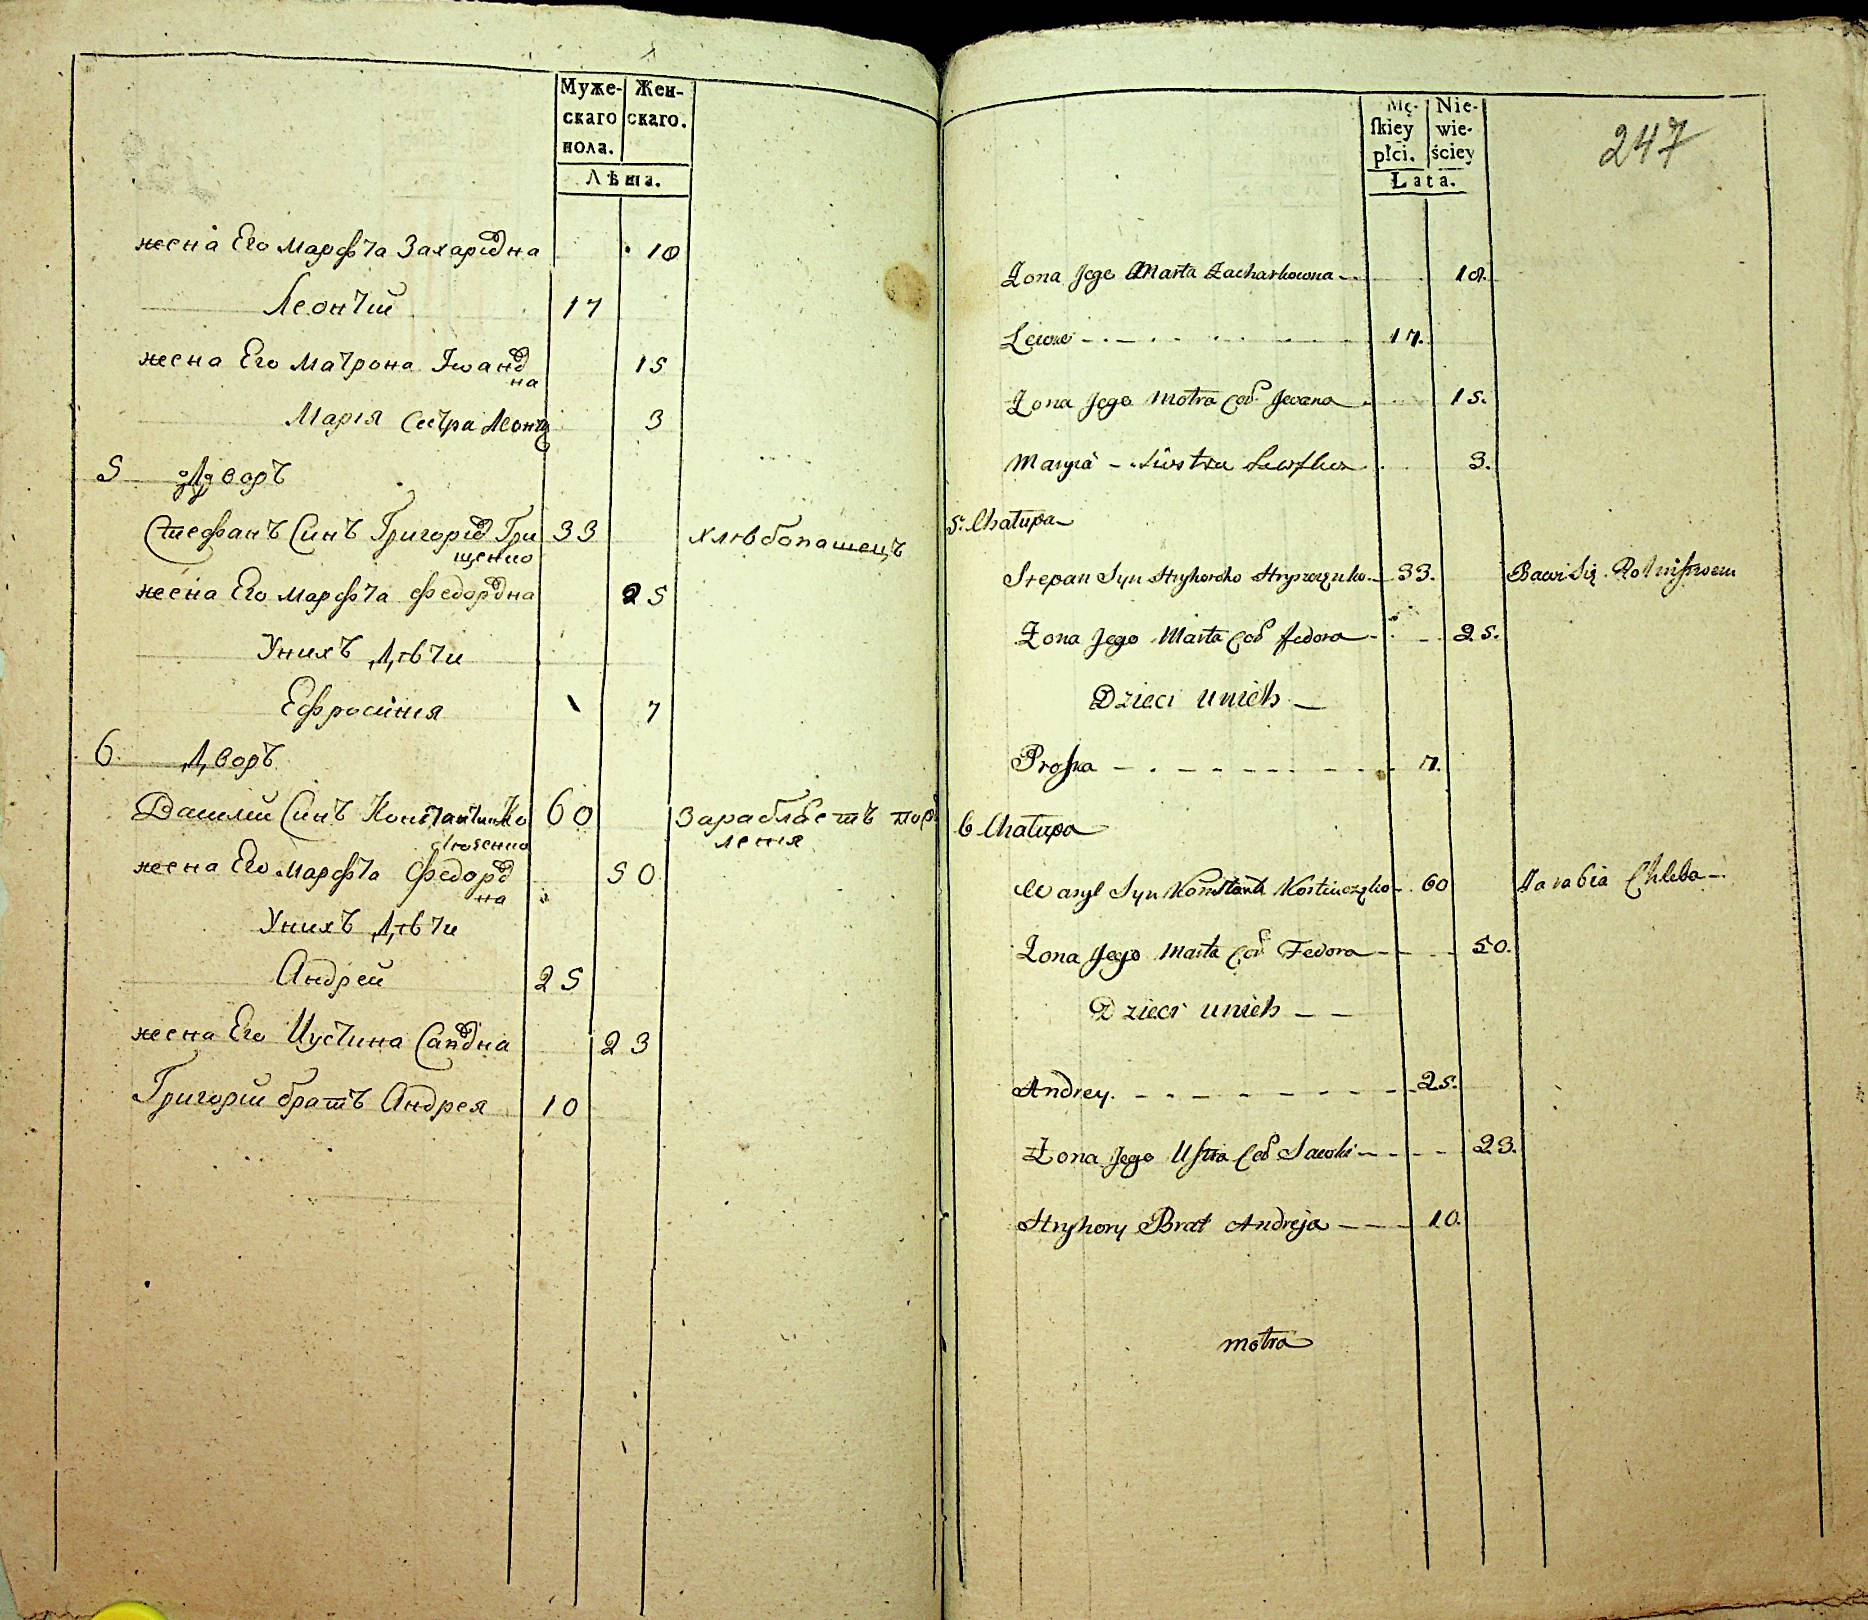 Муже-
скаго
пола.
Жен-
скаго.
Лѣта.
жена Его марфта Захаровна 10
Леонтий 17
жена Его матрона Ивановна
на 15
Мария Сестра 3
5 Дворъ
Стефанъ Синъ Григоров Гри
щенко 33 хлѣбопашецъ
жена Его марфта федоровна 25
Унихъ Дѣти
Ефросиния 7
6. Дворъ
Василий Синъ Константин Ко
60 Зараблаетъ
жена Его марфта Федоров
на 50
Унихъ Дѣти
Андрей 25
жена Его Иустина Саввна 23
Григорий братъ Андрея 10
247
Mę-
ſkiey
płci.
Nie-
wie-
ściey
Lata.
Zona Jego Marta Zacharkowna 10.
17.
Zona Jego Motra Cod Jwana 15.
Maryia Siostra 3.
5. Chatupa
Stepan Syn Hryhorcko Hryszczenko 33. Bawi Się
Zona Jego Marta Cod Fedora 25.
Dzieci unich
Proſka 7.
6 Chatupa
Wasyl Syn Konstanta 60 Zarabia Chleba
Zona Jego Marta Cod Fedora 50.
Dzieci unich
Andrey. 25.
Zona Jego Uſtia Cod Sawki 23.
Hryhory Brat Andreja 10.
motra